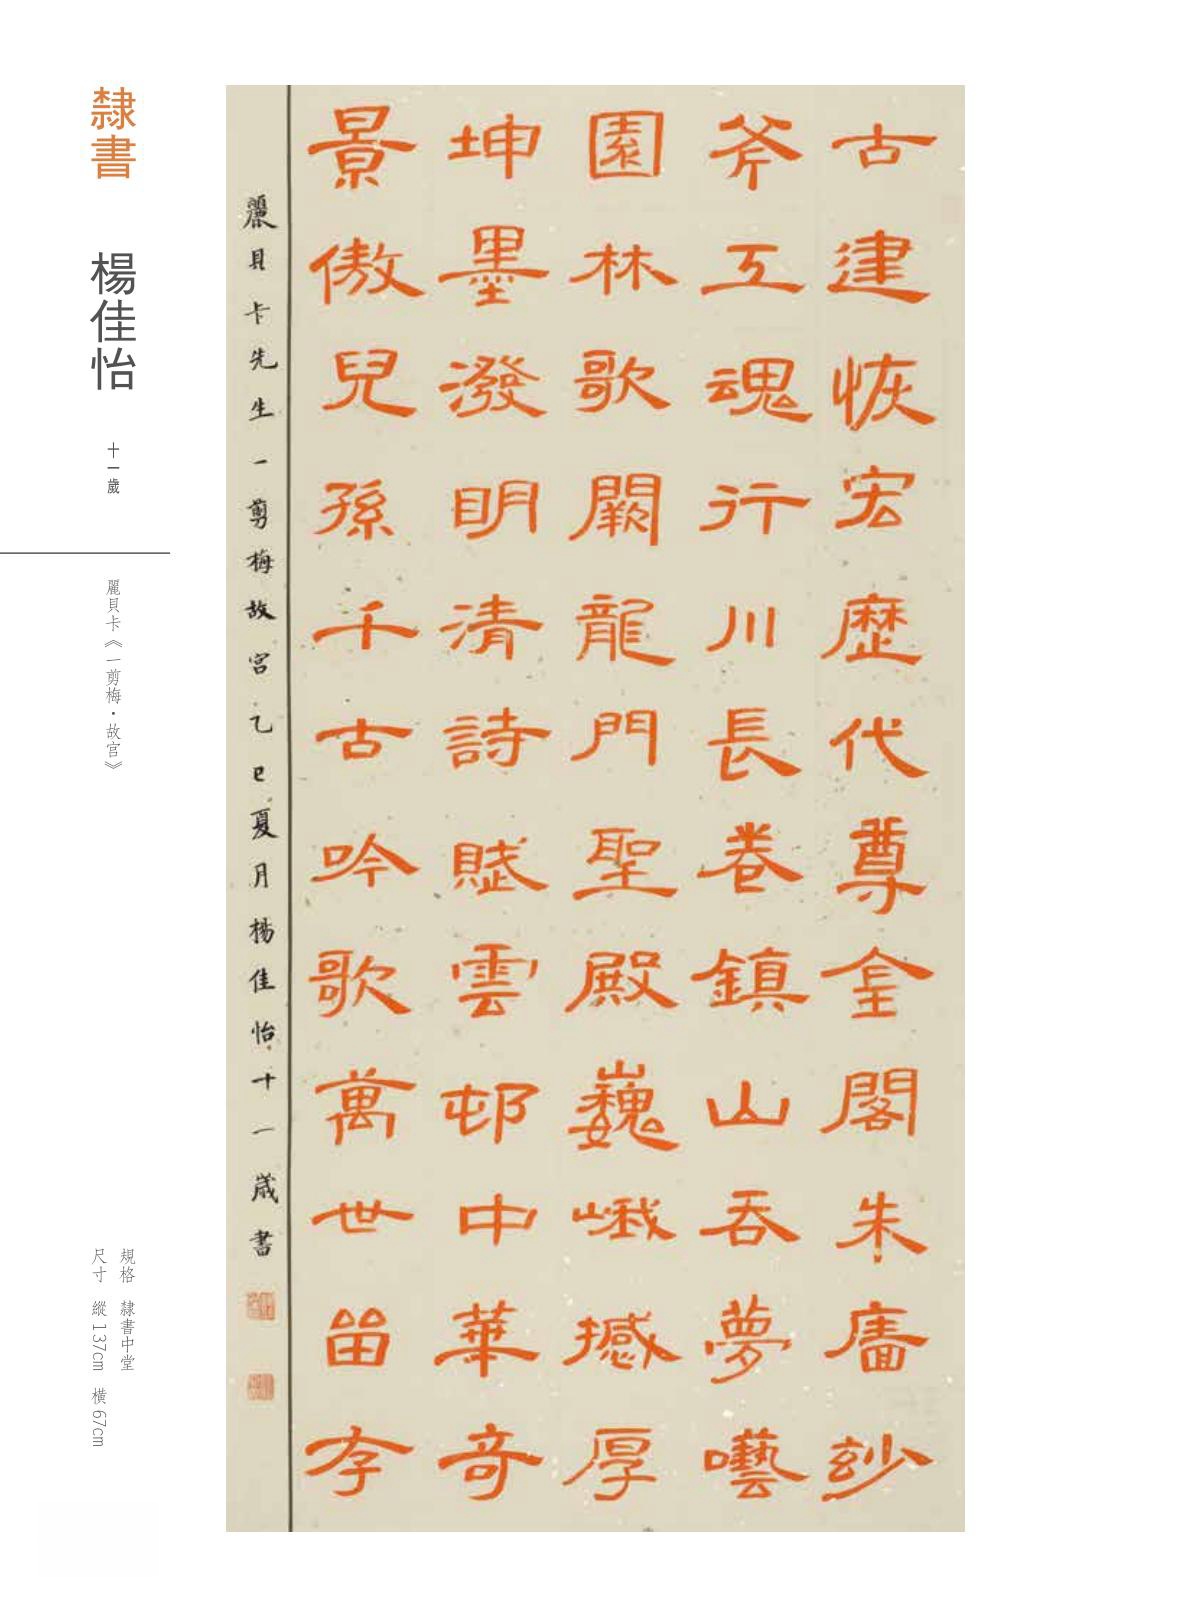 古建恢宏歷代尊金閣朱廧玅
斧工魂行川長卷鎮山吞夢囈
園林歌闕龍門聖殿巍峨撼厚
坤墨潑明清詩賦雲邨中華奇
景傲兒孫千古吟歌萬世留存
麗貝卡先生一剪梅故宮乙巳夏月楊佳怡十一歲書
隸書 楊佳怡 十一歲
麗貝卡《一剪梅·故宮》
規格 隸書中堂
尺寸 縱137cm 橫67cm